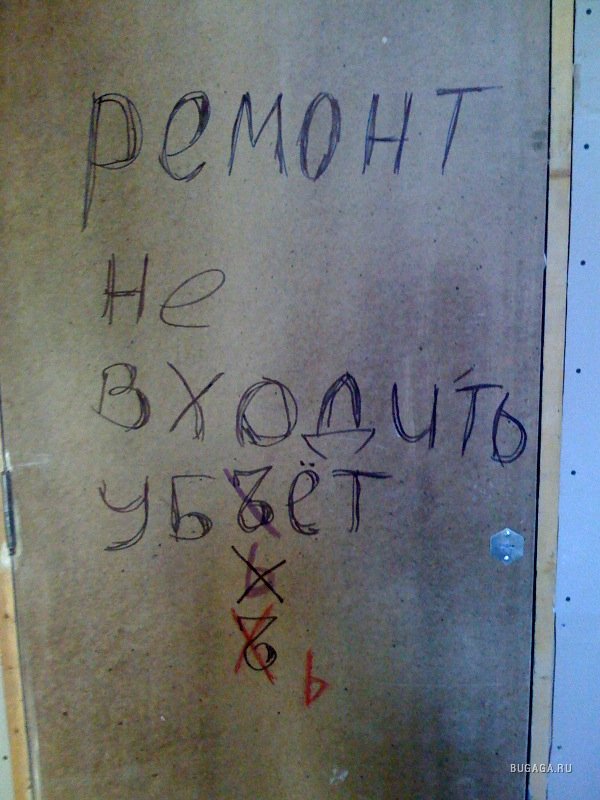 ремонт
не
входить
убъёт
ь
ъ
ь
BUGAGA.RU